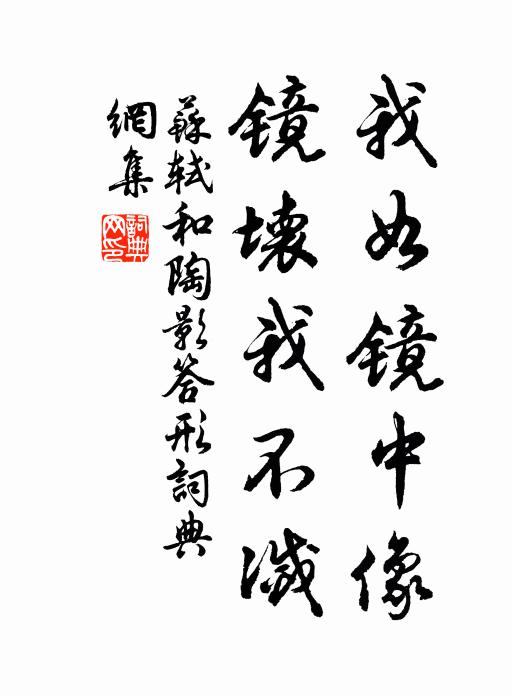 我如鏡中像
鏡壞我不滅
蘇軾和陶影答形詞典
網集
詞典
网印